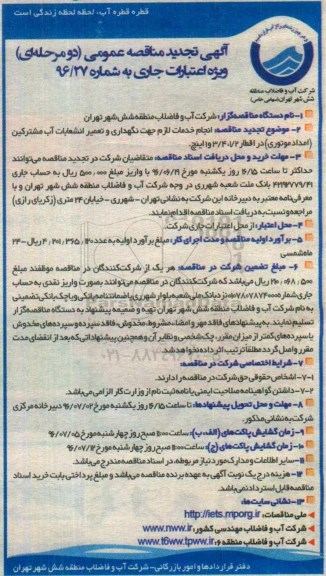 قطره قطره آب، لحظه لحظه زندگی است
آگهی تجدید مناقصه عمومی (دو مرحله‌ای)
ویژه اعتبارات جاری به شماره ۹۶/۲۷
شرکت آب و فاضلاب منطقه
شش شهر تهران (سهامی خاص)
۱- نام دستگاه مناقصه‌گزار: شرکت آب و فاضلاب منطقه شش شهر تهران
۲- موضوع تجدید مناقصه: انجام خدمات لازم جهت نگهداری و تعمیر انشعابات آب مشترکین
(امداد موتوری) در اقطار ۳/۴، ۱/۲ و ۱ اینچ.
۳- مهلت خرید و محل دریافت اسناد مناقصه: متقاضیان شرکت در تجدید مناقصه می‌توانند
حداکثر تا ساعت ۱۶/۱۵ روز یکشنبه مورخ ۹۶/۰۶/۱۹ با واریز مبلغ ۵۰۰,۰۰۰ ریال به حساب جاری
بانک ملت شعبه شهرری در وجه شرکت آب و فاضلاب منطقه شش شهر تهران و با
معرفی‌نامه معتبر به دبیرخانه این شرکت به نشانی تهران - شهرری - خیابان ۲۴ متری (زکریای رازی)
مراجعه و نسبت به دریافت اسناد مناقصه اقدام نمایند.
۴- محل اعتبار: از محل اعتبارات جاری شرکت.
۵- برآورد اولیه مناقصه و مدت اجرای کار: مبلغ برآورد اولیه به عدد ریال - ۲۴
ماه شمسی
۶- مبلغ تضمین شرکت در مناقصه: هر یک از شرکت‌کنندگان در مناقصه موظفند مبلغ
ریال می‌باشد که شرکت‌کنندگان در مناقصه می‌توانند بصورت واریز نقدی به حساب
جاری شماره نزد بانک ملی شعبه بلوار شهرری یا ضمانتنامه بانکی و یا چک بانکی تضمینی
به نام شرکت آب و فاضلاب منطقه شش شهر تهران تهیه و ضمیمه پیشنهاد به دستگاه مناقصه‌گزار
تسلیم نمایند. به پیشنهادهای فاقد مهر و امضاء، مشروط، مخدوش، فاقد سپرده و سپرده‌های مخدوش
یا سپرده‌های کمتر از میزان مقرر، چک شخصی و نظایر آن و همچنین پیشنهاداتی که بعد از انقضای مدت
مقرر واصل گردد مطلقاً ترتیب اثر داده نخواهد شد.
۷- شرایط اختصاصی شرکت در مناقصه:
۷-۱- اشخاص حقوقی حق شرکت در مناقصه را دارند.
۷-۲- داشتن گواهینامه صلاحیت ایمنی پایانامه ثبت نام از وزارت کار الزامی می‌باشد.
۸- مهلت و محل تحویل پیشنهادها: تا ساعت ۱۶/۱۵ روز یکشنبه مورخ ۹۶/۰۷/۰۲ دبیرخانه مرکزی
شرکت به نشانی مذکور.
۹- زمان گشایش پاکت‌های (الف، ب): ساعت ۱۱:۰۰ صبح روز چهارشنبه مورخ ۹۶/۰۷/۰۵
۱۰- زمان گشایش پاکت‌های (ج): ساعت ۱۱:۰۰ صبح روز چهارشنبه مورخ ۹۶/۰۷/۱۲
۱۱- سایر اطلاعات و مدارک مورد نیاز مربوطه، در اسناد مناقصه مندرج می‌باشد.
۱۲- هزینه درج یک نوبت آگهی به عهده برنده مناقصه می‌باشد و مبلغ پرداختی بابت خرید اسناد
مناقصه قابل استرداد نمی‌باشد.
۱۳- نشانی سایت‌ها:
ملی مناقصات: http://iets.mporg.ir
شرکت آب و فاضلاب مهندسی کشور: www.nww.ir
شرکت آب و فاضلاب منطقه ۶: www.t6ww.tpww.ir
دفتر قراردادها و امور بازرگانی - شرکت آب و فاضلاب منطقه شش شهر تهران